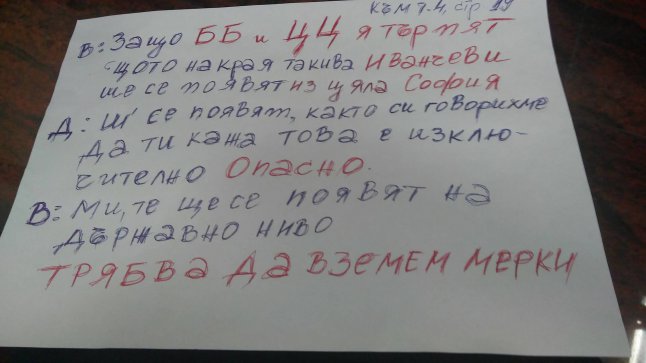 към т.4, стр 19
В: Защо ББ и ЦЦ я търпят
щото накрая такива Иванчеви
ще се появят из цяла София
Д: Ш' се появят, както си говорихме
Да ти кажа това е изклю-
чително Опасно.
В: Ми, те ще се появят на
държавно ниво
ТРЯБВА ДА ВЗЕМЕМ МЕРКИ